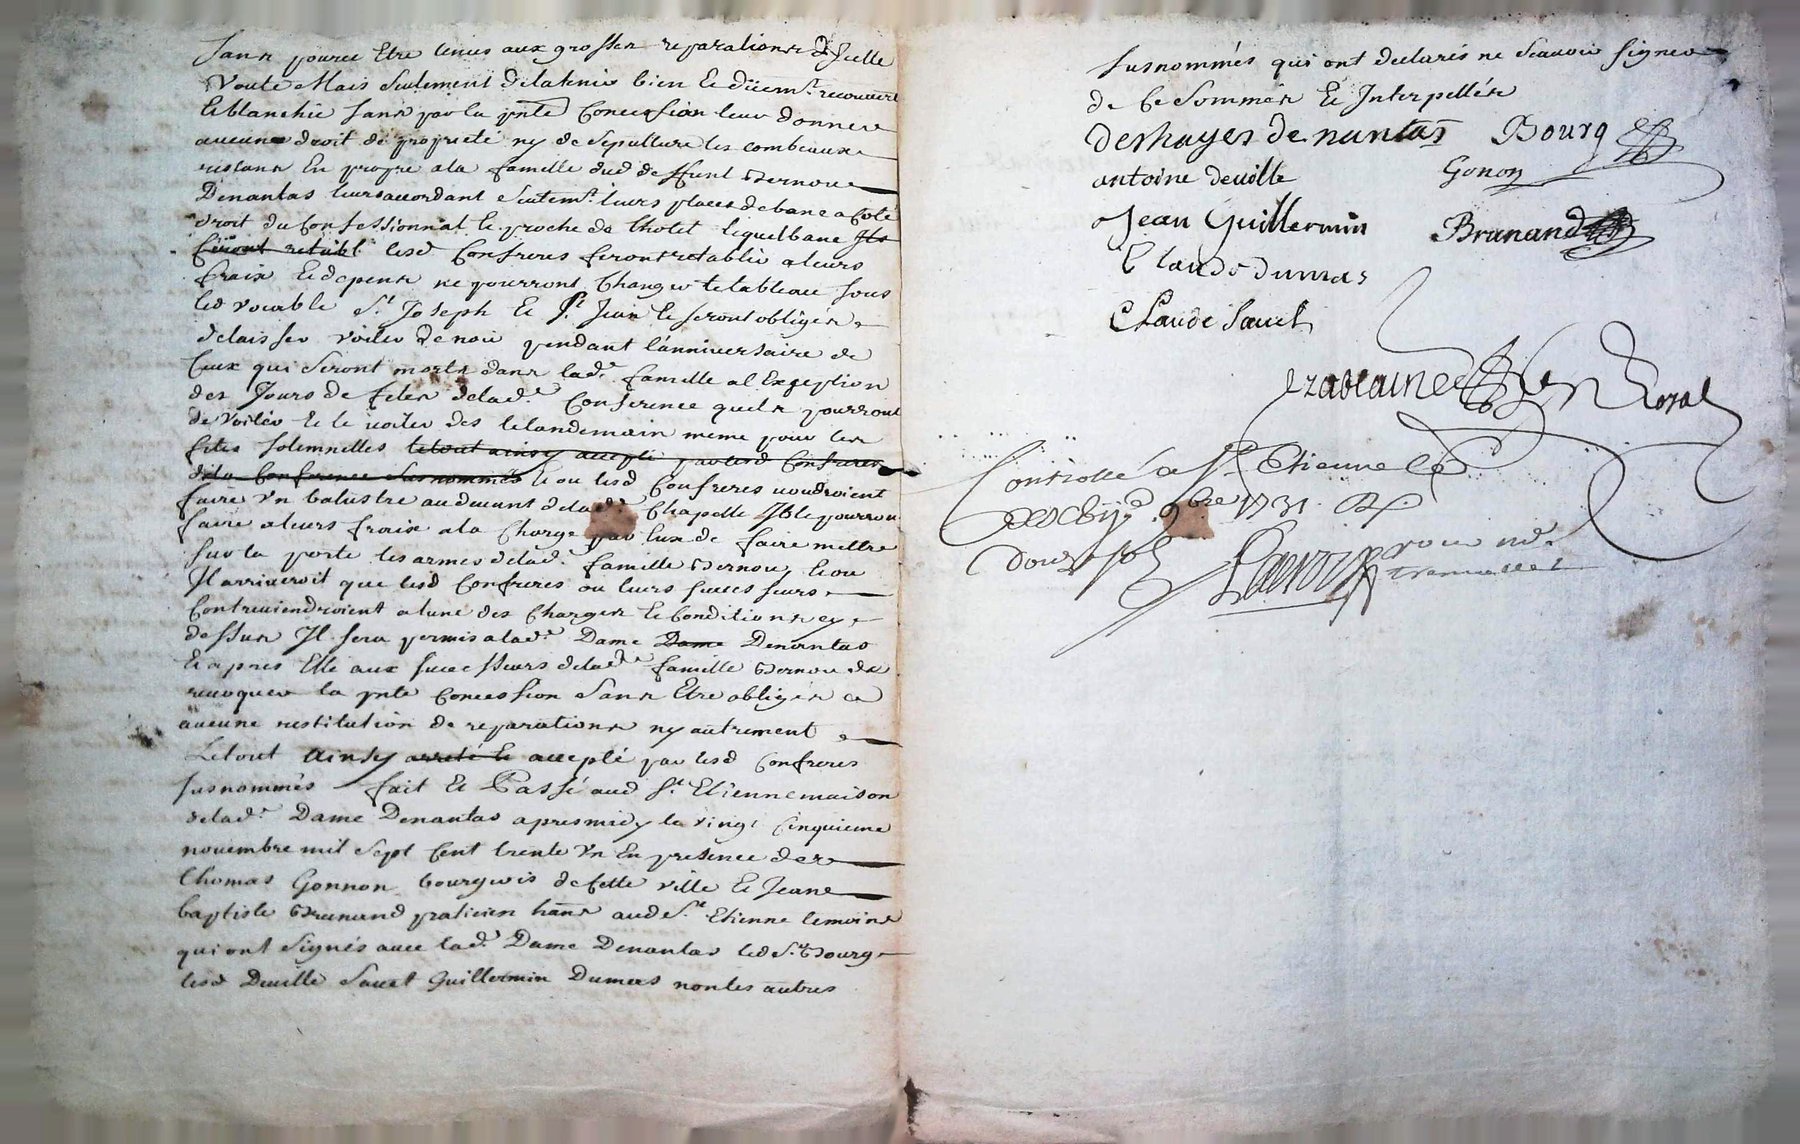 sans pouvoir Etre tenus aux grosses reparations d'Icelle
Voute Mais seulement de la tenir bien Et düem.t recouverte
Et blanchie sans par la pnte Concession leur donner
aucune droit de proprieté ny de sepulture les tombeaux
restans En propre a la famille dud deffunt Bernou
Denantas leurs accordant seulem.t leurs places de banc a Coté
droit du Confessionnal le proche de lhotel lequel banc Ils
feront retabl lesd Confreres feront retablir a leurs
fraix Et depens ne pourront Changer le tableau sous
led vocable S.t Joseph Et S.t Jean Et seront obligés
de laisser voiler de noir pendant l'anniversaire de
Ceux qui seront morts dans lad.e famille al Exeption
des Jours de fetes de lad.e Conference quels pourront
de Voiler Et le voiler des le landemain meme pour les
fetes solemnelles le tout ainsy accepté par lesd Confreres
de la Conference susnommés Et ou lesd Confreres voudroient
faire Vn balustre au devant de lad.e Chapelle Ils le pourron
faire a leurs frais a la Charge par Eux de faire mettre
sur la porte les armes de lad.e famille Bernou Et ou
Il arriveroit que lesd Confreres ou leurs successeurs
Contreviendroient a lune des Charges Et Conditions cy
dessus Il sera permis a lad.e Dame Dame Denantas
Et apres Elle aux successeurs de lad.e famille Bernou de
revoquer la pnte Concession sans Etre obligés a
aucune restitution de reparations ny autrement
Le tout ainsy arreté Et accepté par lesd Confreres
susnommés fait Et Passé aud S.t Etienne maison
de lad.e Dame Denantas apres midy le vingt Cinquieme
novembre mil sept Cent trente Vn En presence de
Thomas Gonnon bourgeois de cette ville Et Jean
baptiste Brunand praticien hans aud S.t Etienne temoins
qui ont signés avec lad.e Dame Denantas led S.r Bourg
lesd Deville Sauet Guillermin Dumas non les autres
susnommés qui ont declarés ne scavoir signer
de Ce sommés Et Interpellés
deshayes de nantas Bourg
antoine deville Gonon
Jean Guillermin Brunand
Claude dumas
Claude Sauet
Royal
Controllé a S.t Etienne le
9bre 1731
douze sols